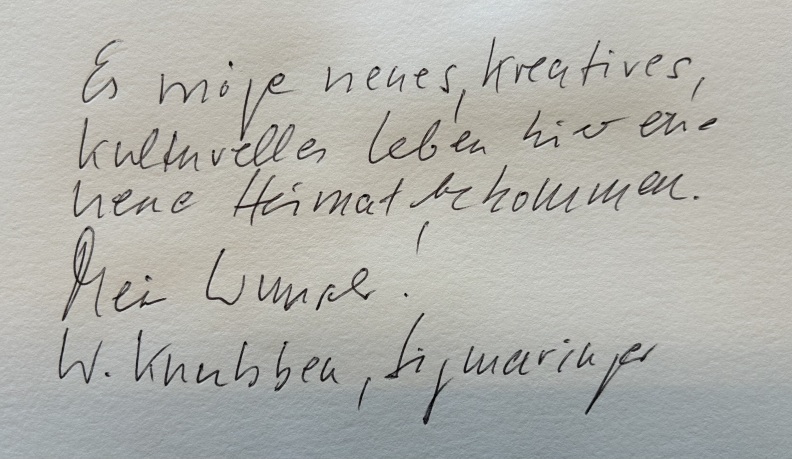 Es möge neues, kreatives,
kulturelles Leben hier eine
neue Heimat bekommen.
Mein Wunsch!
W. Knubben, Sigmaringen